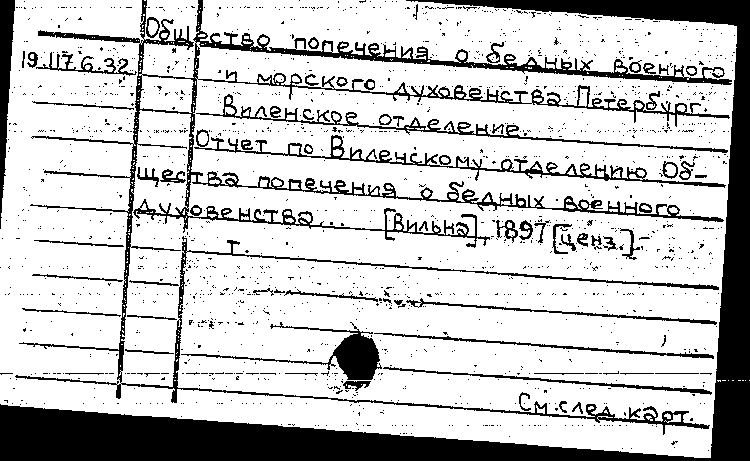 Общество попечения о бедных военного
19.117.6.32
и морского духовенства. Петербург.
Виленское отделение.
Отчет по Виленскому отделению Об-
щества попечения о бедных военного
духовенства... [Вильна], 1897 [ценз.].-
т.
См. след. карт.